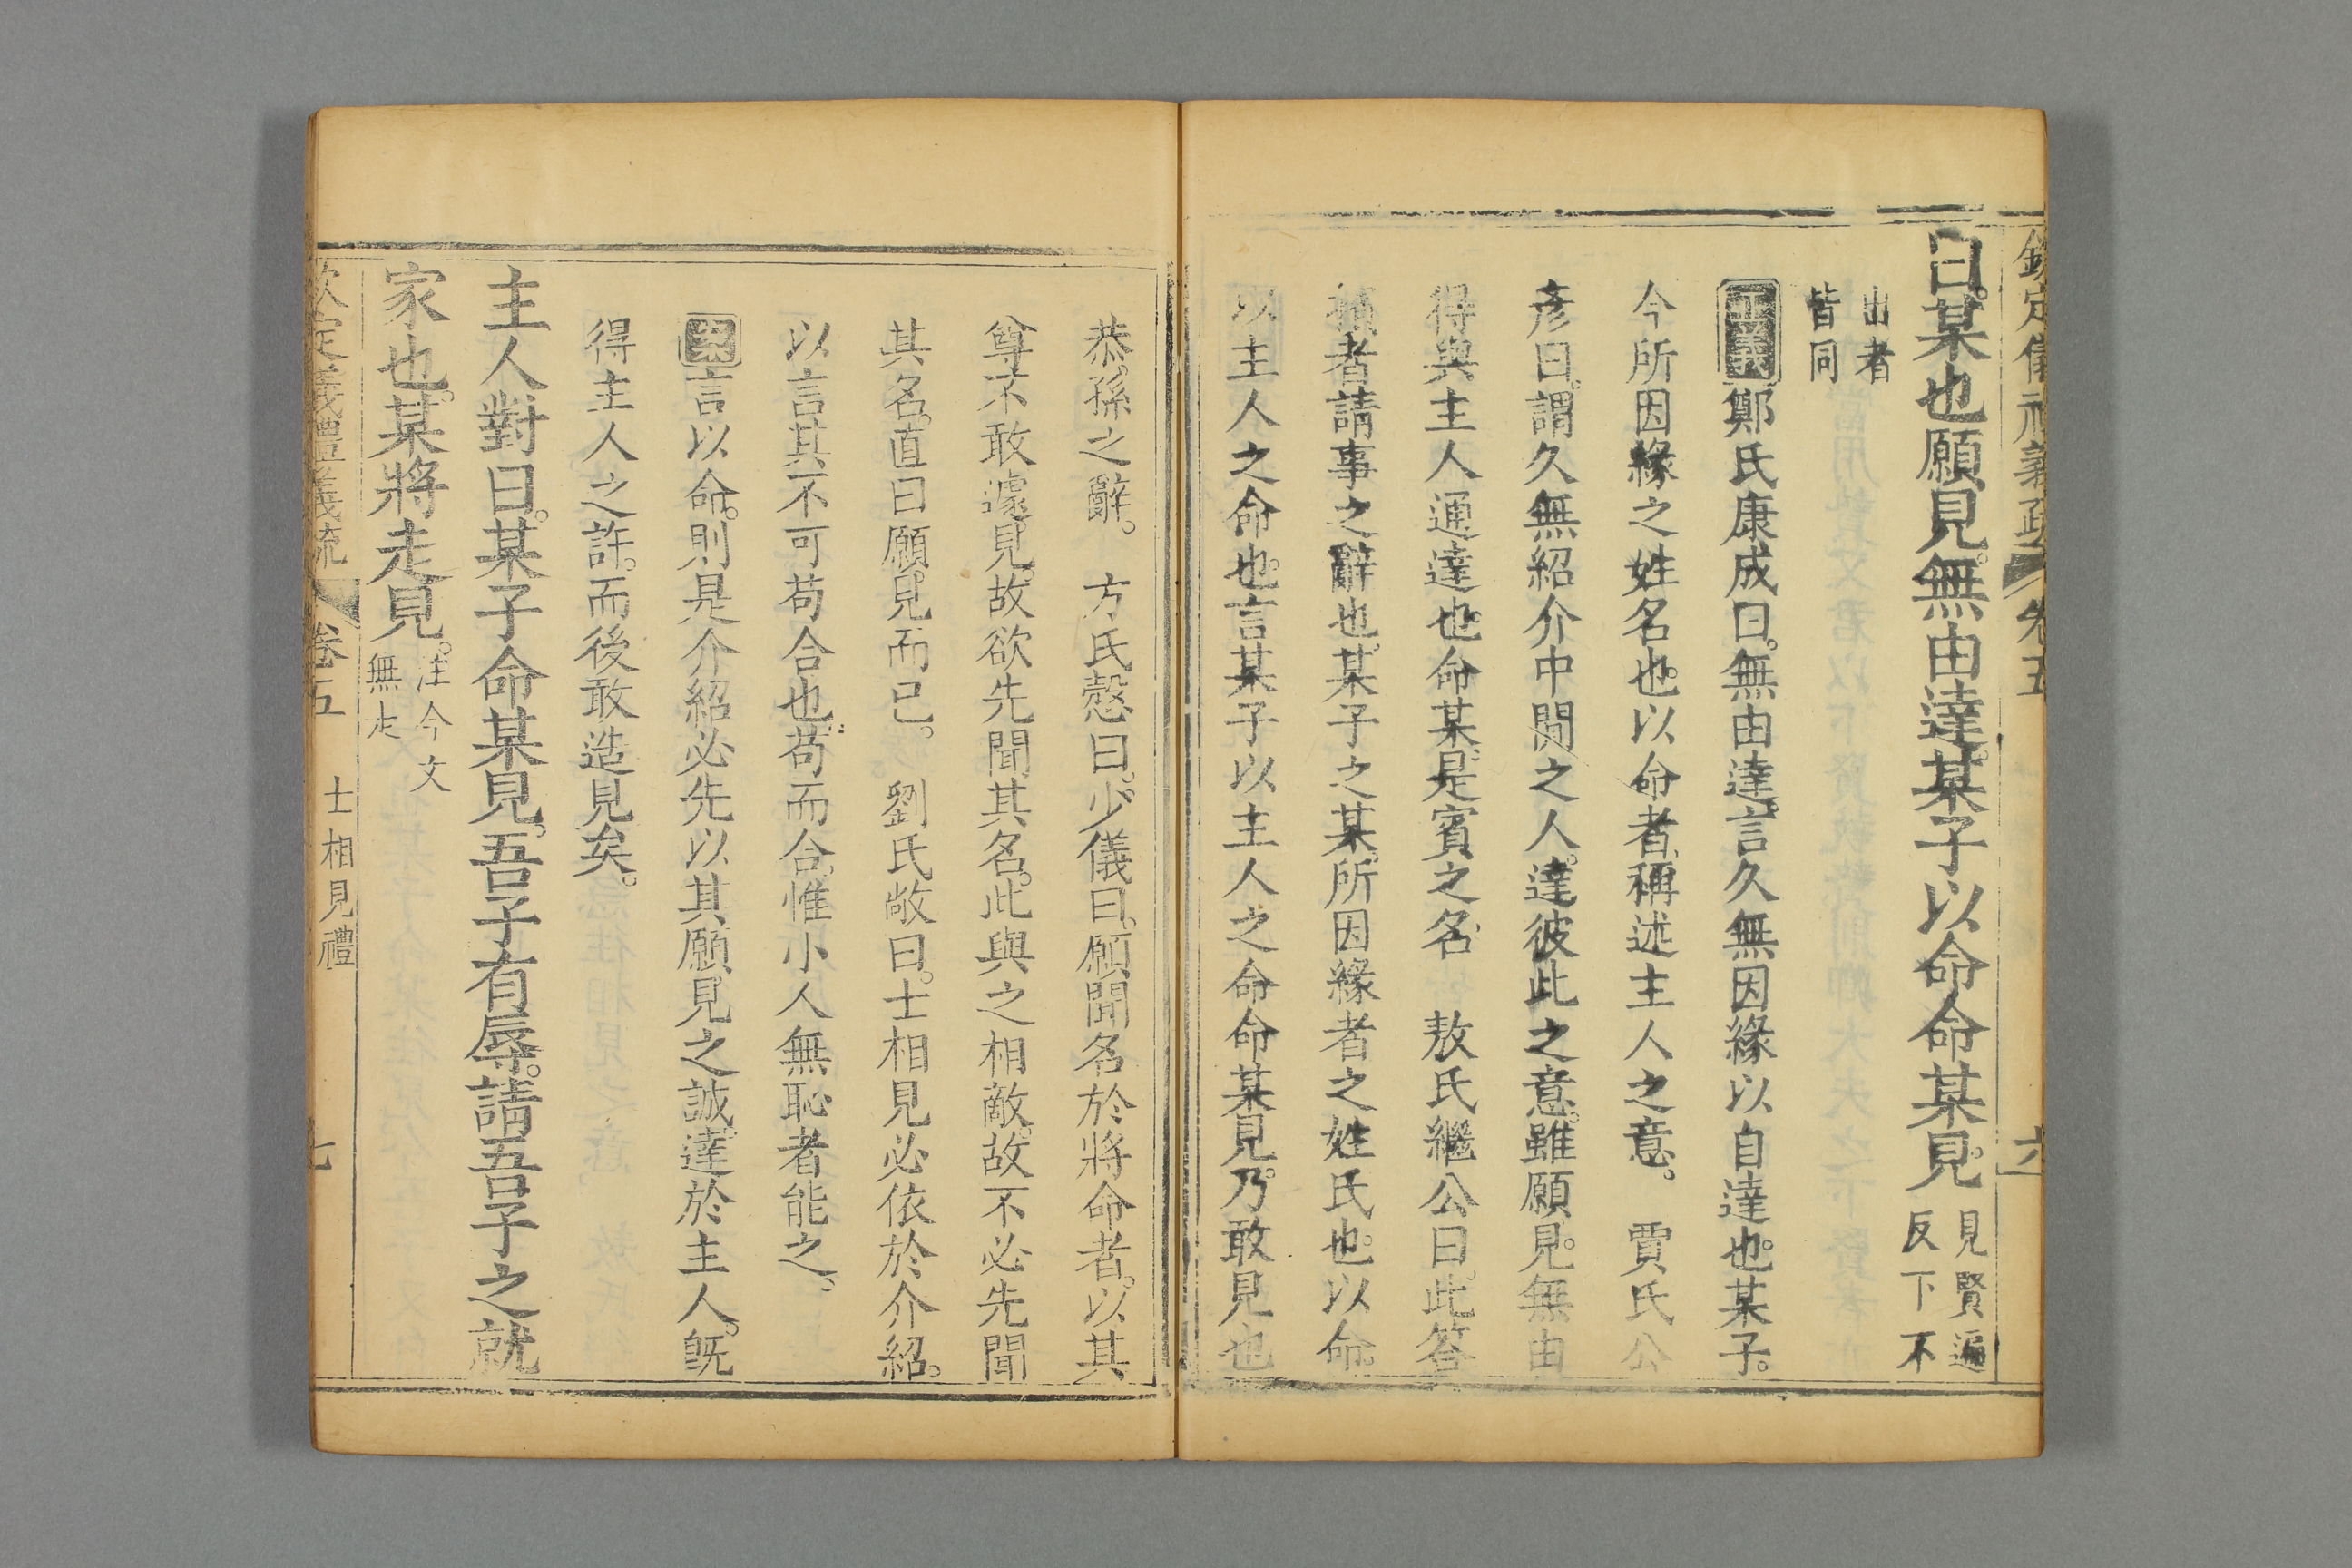 欽定儀禮義疏 卷五 六
曰。某也願見。無由達。某子以命命某見。見賢遍反下不
出者皆同
正義鄭氏康成曰。無由達。言久無因緣以自達也。某子。
今所因緣之姓名也。以命者。稱述主人之意。 賈氏公
彥曰。謂久無紹介中閒之人。達彼此之意。雖願見。無由
得與主人通達也。命某。是賓之名。 敖氏繼公曰。此答
擯者請事之辭也。某子之某。所因緣者之姓氏也。以命。
以主人之命也。言某子以主人之命命某見。乃敢見也
恭孫之辭。 方氏慤曰。少儀曰。願聞名於將命者。以其
尊不敢遽見。故欲先聞其名。此與之相敵。故不必先聞
其名。直曰願見而已。 劉氏敞曰。士相見必依於介紹。
以言其不可苟合也。苟而合。惟小人無恥者能之。
案言以命。則是介紹必先以其願見之誠。達於主人。旣
得主人之許。而後敢造見矣。
主人對曰。某子命某見。吾子有辱。請吾子之就
家也。某將走見。注今文無走
欽定義禮義疏 卷五 士相見禮 七